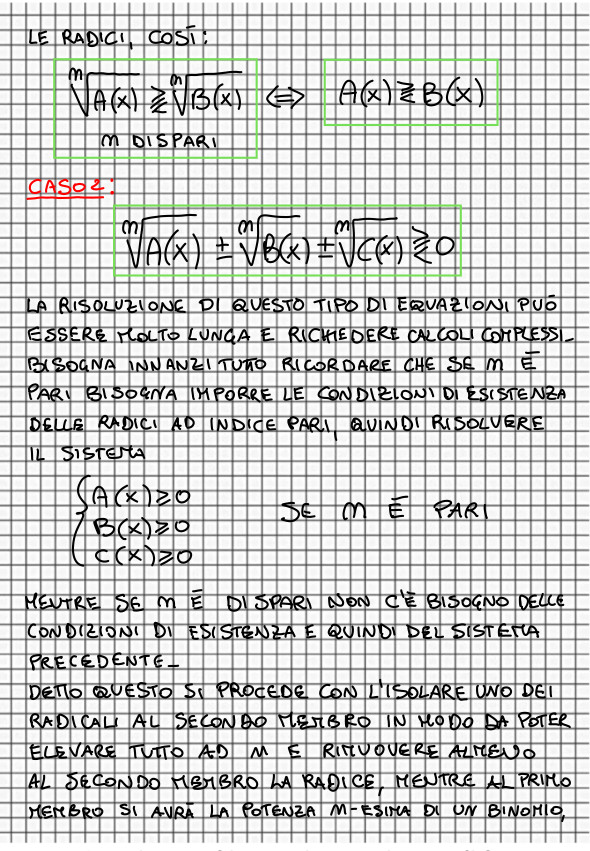 LE RADICI, COSĪ:
ᵐ√A(x) ⋛ ᵐ√B(x) ⟺ A(x) ⋛ B(x)
m DISPARI
CASO 2:
ᵐ√A(x) ± ᵐ√B(x) ± ᵐ√C(x) ⋛ 0
LA RISOLUZIONE DI QUESTO TIPO DI EQUAZIONI PUŌ
ESSERE MOLTO LUNGA E RICHIEDERE CALCOLI COMPLESSI_
BISOGNA INNANZI TUTTO RICORDARE CHE SE m Ē
PARI BISOGNA IMPORRE LE CONDIZIONI DI ESISTENZA
DELLE RADICI AD INDICE PARI, QUINDI RISOLVERE
IL SISTEMA
{ A(x)⩾0
B(x)⩾0 SE m Ē PARI
C(x)⩾0
MENTRE SE m Ē DISPARI NON C'Ē BISOGNO DELLE
CONDIZIONI DI ESISTENZA E QUINDI DEL SISTEMA
PRECEDENTE_
DETTO QUESTO SI PROCEDE CON L'ISOLARE UNO DEI
RADICALI AL SECONDO MEMBRO IN MODO DA POTER
ELEVARE TUTTO AD M E RIMUOVERE ALMENO
AL SECONDO MEMBRO LA RADICE, MENTRE AL PRIMO
MEMBRO SI AVRĀ LA POTENZA M-ESIMA DI UN BINOMIO,